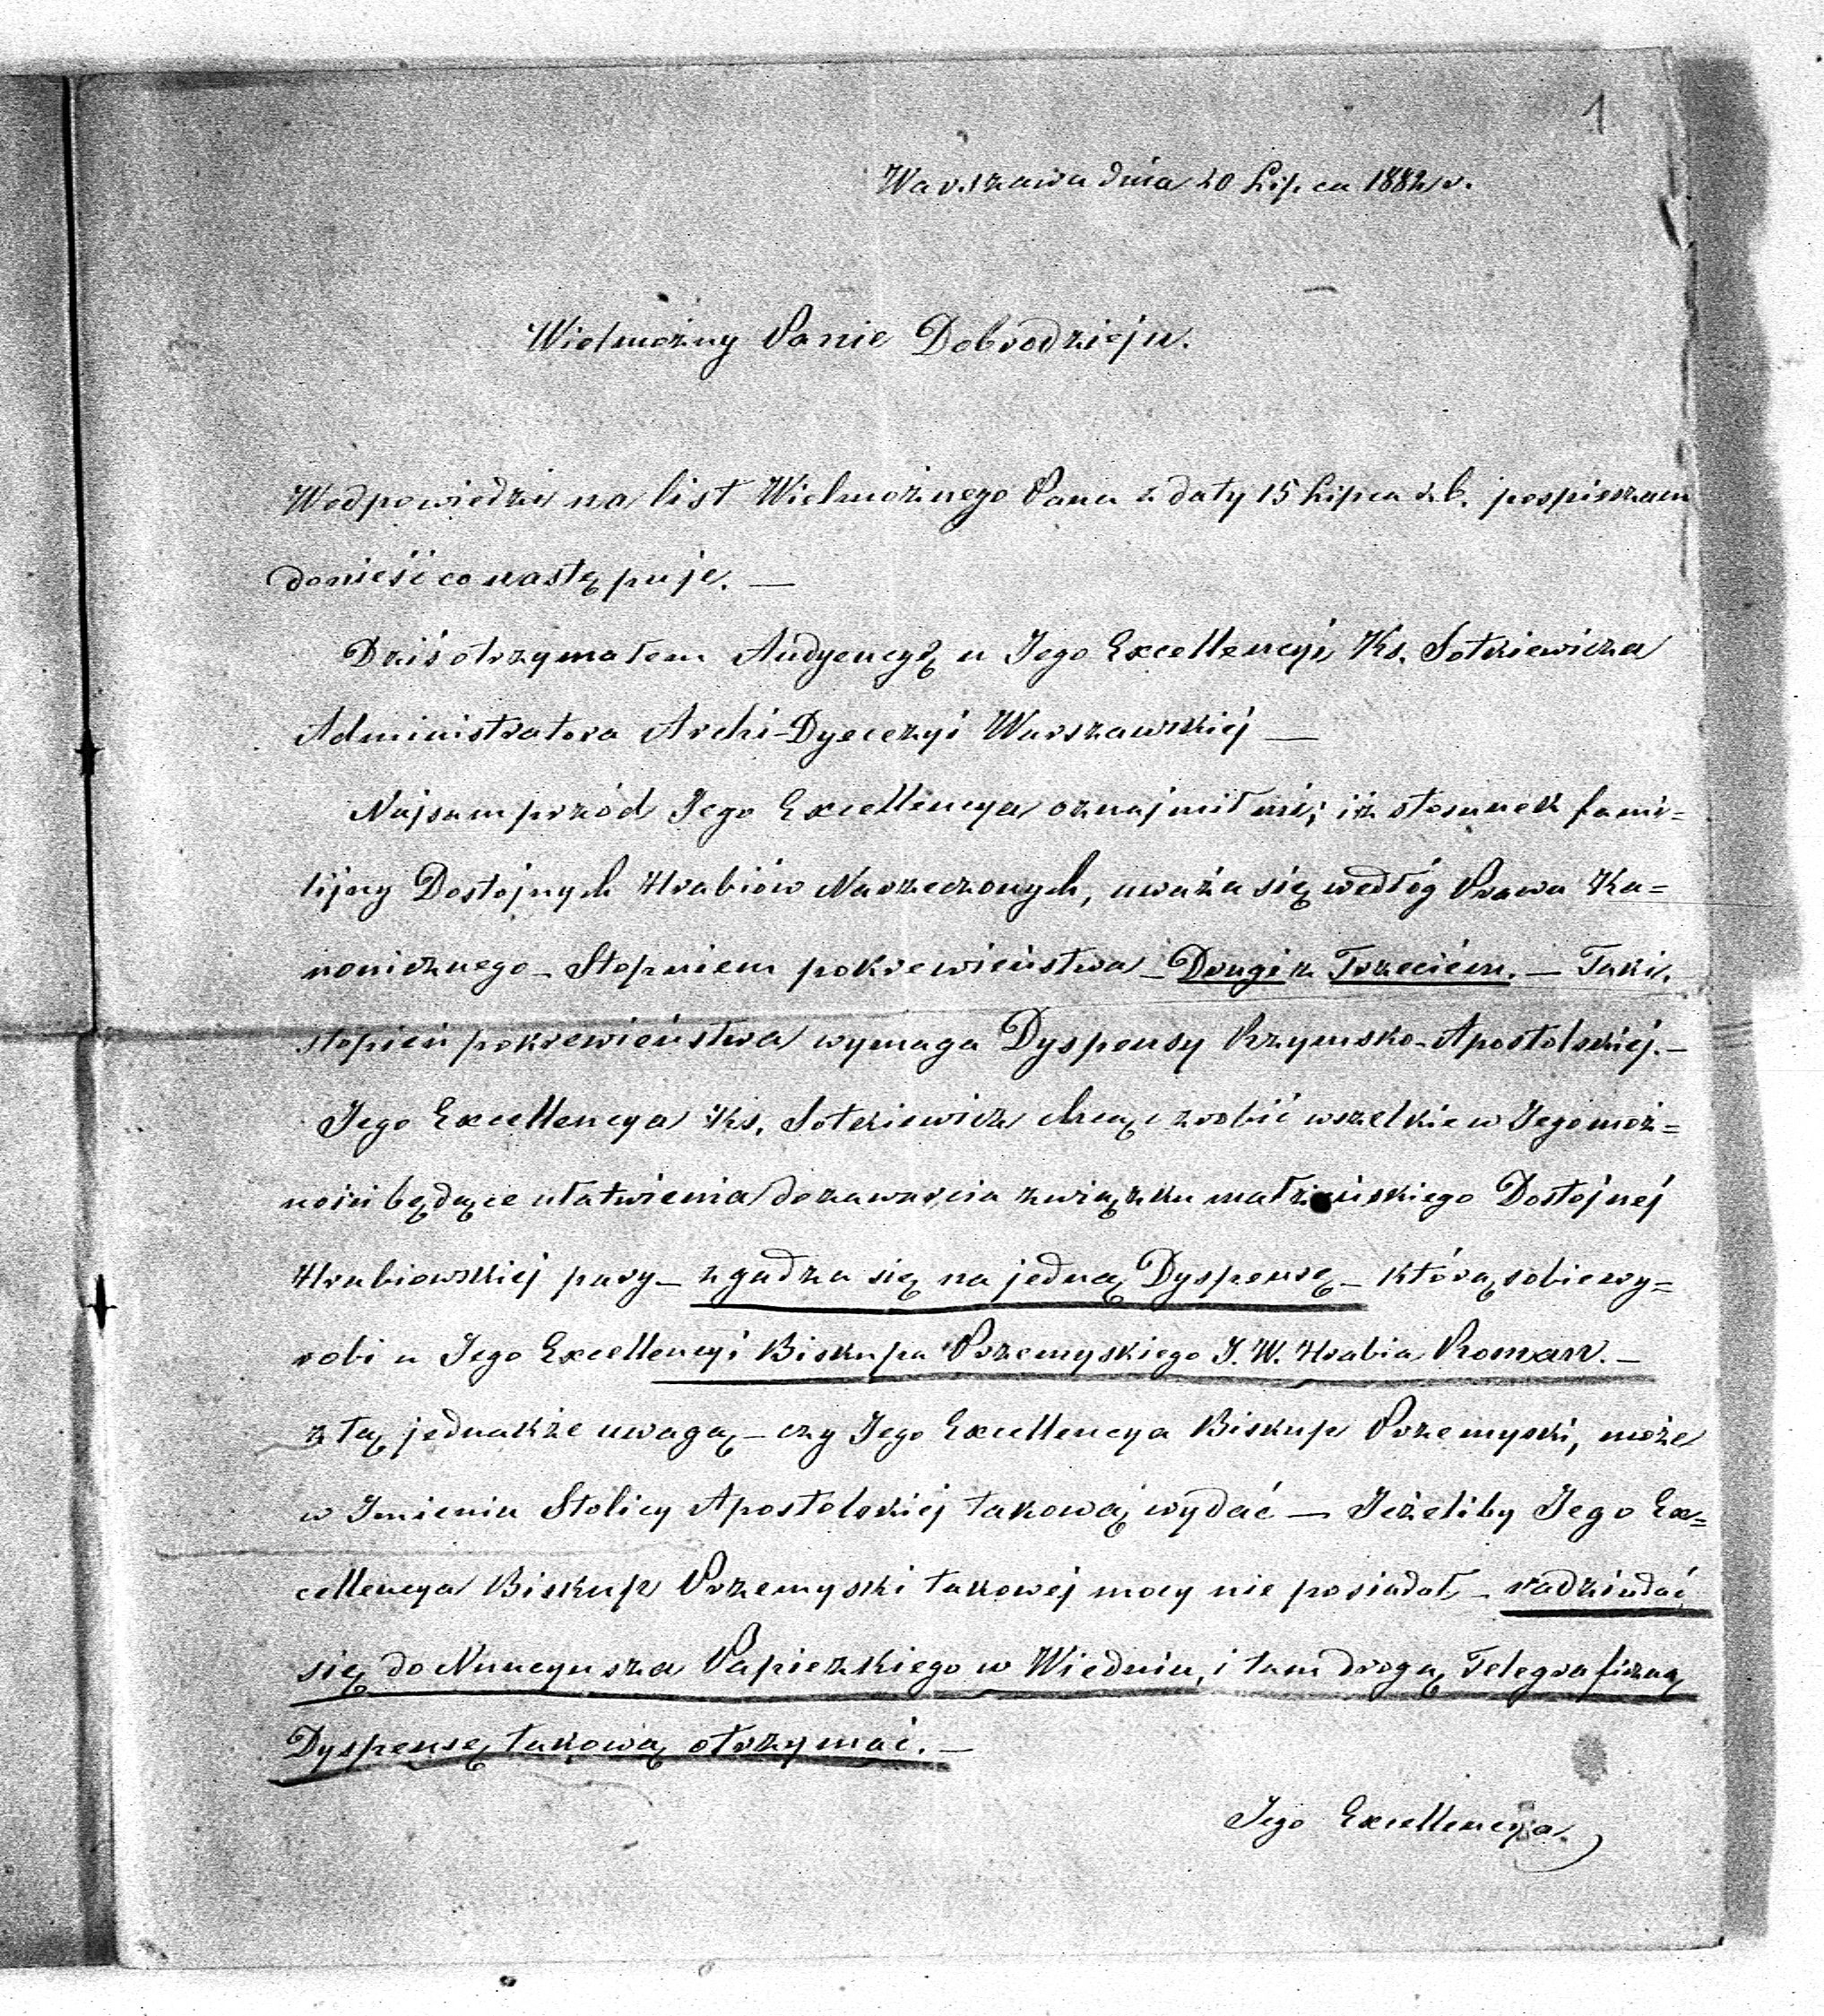 1
Warszawa dnia 20 Lipca 1882 r.
Wielmożny Panie Dobrodzieju.
W odpowiedzi na list Wielmożnego Pana z daty 15 Lipca r.b. pospieszam
donieść co następuje. —
Dziś otrzymałem Audyencyę u Jego Excellencyi Ks. Sotkiewicza
Administratora Archi-Dyecezyi Warszawskiej —
Najsamprzód Jego Excellencya oznajmił mi, iż stosunek fami=
lijny Dostojnych Hrabiów Narzeczonych, uważa się według Prawa Ka=
nonicznego – Stopniem pokrewieństwa – Drugi z Trzeciem. — Taki
stopień pokrewieństwa wymaga Dyspensy Rzymsko-Apostolskiej. —
Jego Excellencya Ks. Sotkiewicz chcąc zrobić wszelkie w Jego moż=
ności będące ułatwienia do zawarcia związku małżeńskiego Dostojnej
Hrabiowskiej pary – zgadza się na jedną Dyspensę – którą sobie wy=
robi u Jego Excellencyi Biskupa Przemyskiego J. W. Hrabia Roman. —
z tą jednakże uwagą – czy Jego Excellencya Biskup Przemyski, może
w Imieniu Stolicy Apostolskiej takową wydać — Jeżeliby Jego Ex=
cellencya Biskup Przemyski takowej mocy nie posiadał – radzi udać
się do Nuncyusza Papiezkiego w Wiedniu, i tam drogą Telegraficzną
Dyspensę takową otrzymać. —
Jego Excellencya